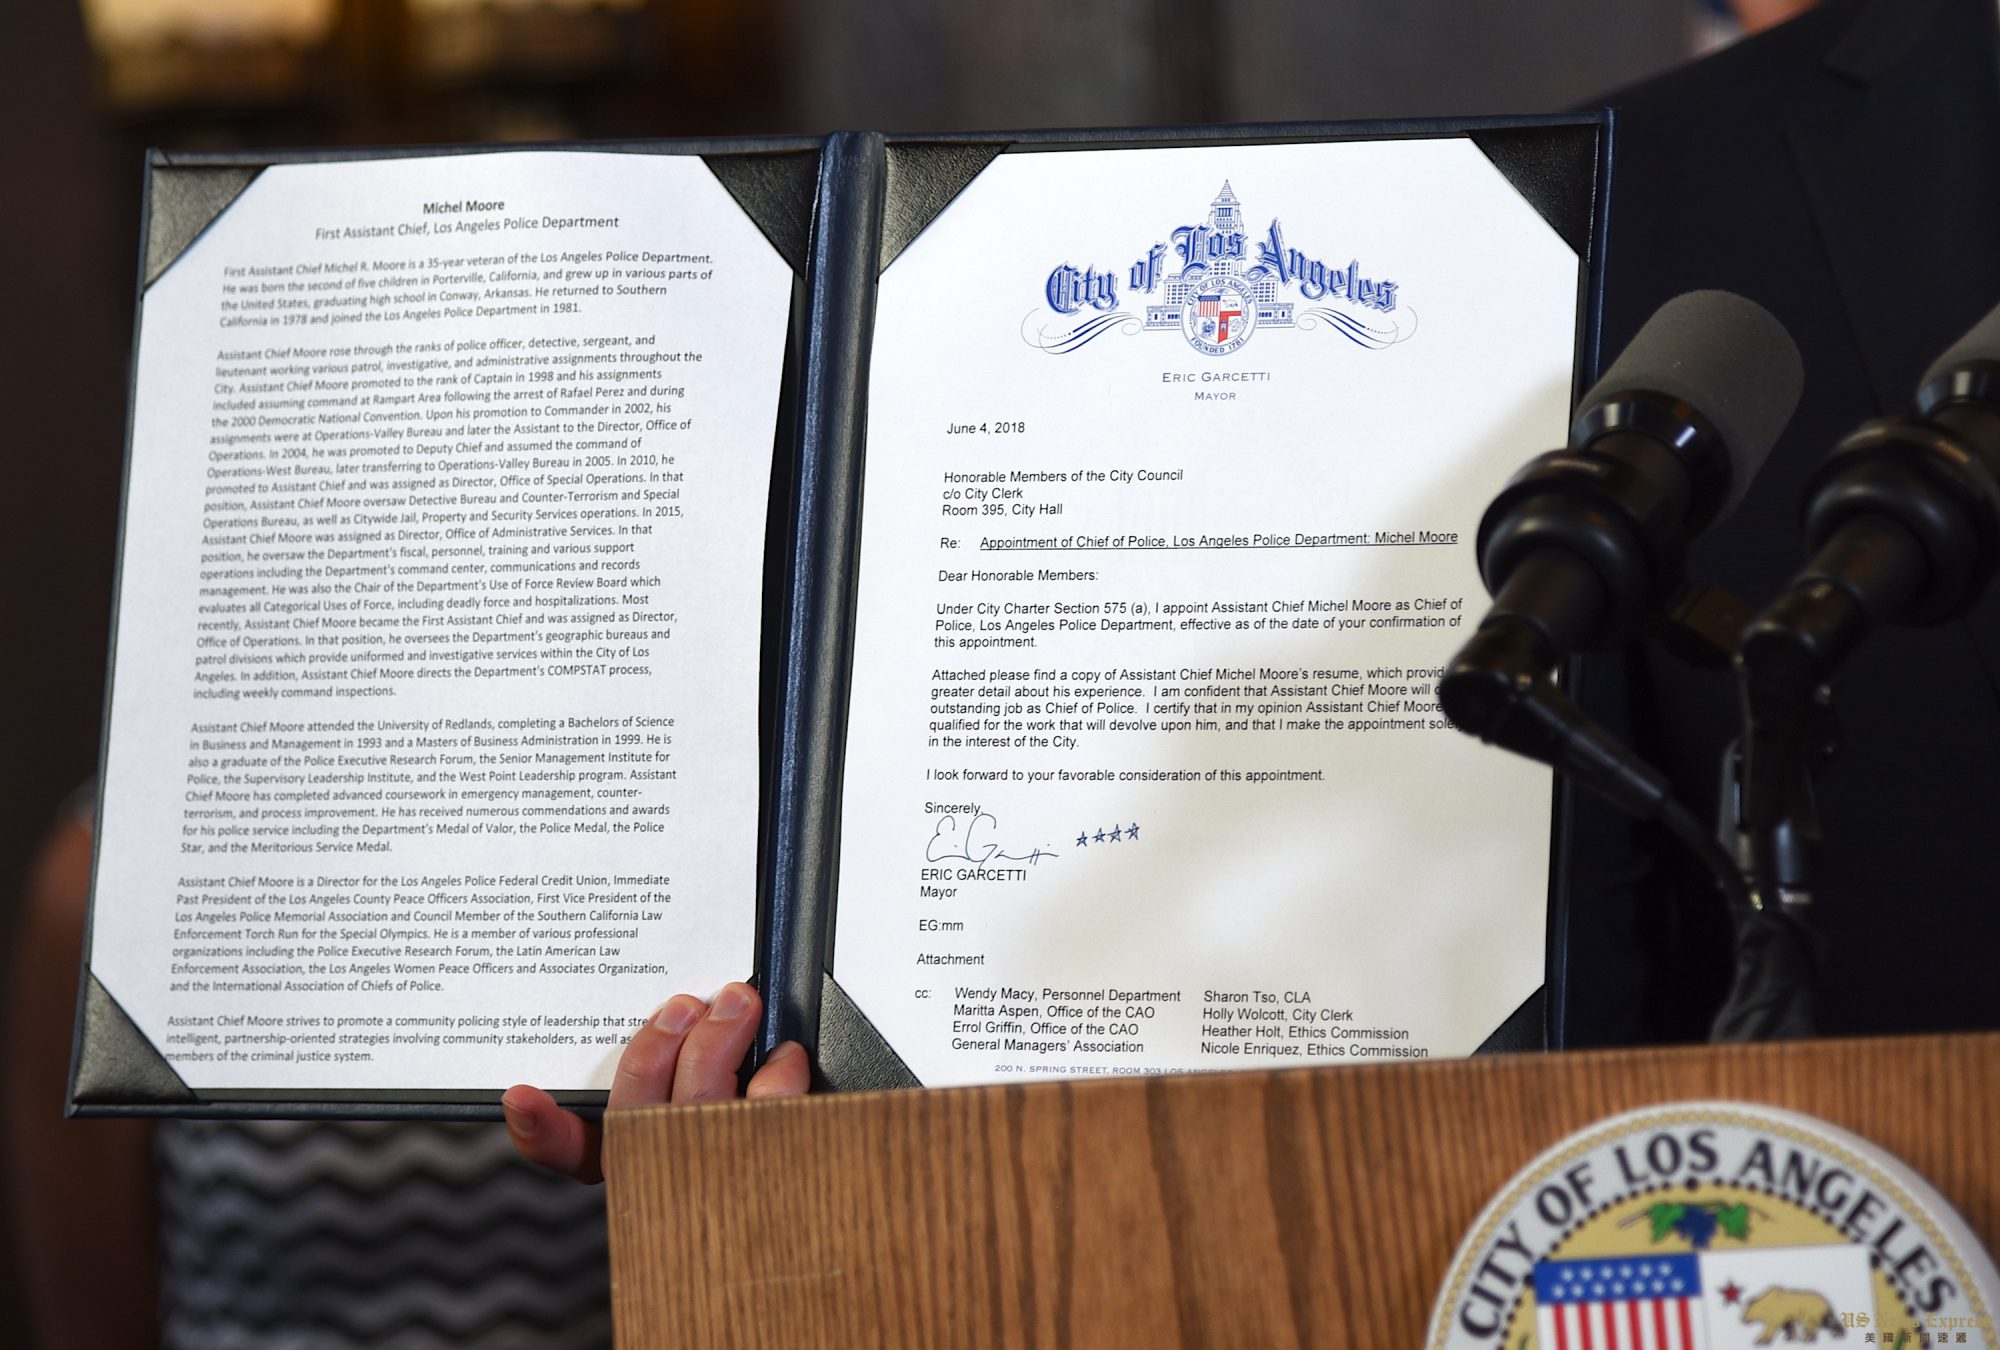 Michel Moore
First Assistant Chief, Los Angeles Police Department
First Assistant Chief Michel R. Moore is a 35-year veteran of the Los Angeles Police Department.
He was born the second of five children in Porterville, California, and grew up in various parts of
the United States, graduating high school in Conway, Arkansas. He returned to Southern
California in 1978 and joined the Los Angeles Police Department in 1981.
Assistant Chief Moore rose through the ranks of police officer, detective, sergeant, and
lieutenant working various patrol, investigative, and administrative assignments throughout the
City. Assistant Chief Moore promoted to the rank of Captain in 1998 and his assignments
included assuming command at Rampart Area following the arrest of Rafael Perez and during
the 2000 Democratic National Convention. Upon his promotion to Commander in 2002, his
assignments were at Operations-Valley Bureau and later the Assistant to the Director, Office of
Operations. In 2004, he was promoted to Deputy Chief and assumed the command of
Operations-West Bureau, later transferring to Operations-Valley Bureau in 2005. In 2010, he
promoted to Assistant Chief and was assigned as Director, Office of Special Operations. In that
position, Assistant Chief Moore oversaw Detective Bureau and Counter-Terrorism and Special
Operations Bureau, as well as Citywide Jail, Property and Security Services operations. In 2015,
Assistant Chief Moore was assigned as Director, Office of Administrative Services. In that
position, he oversaw the Department's fiscal, personnel, training and various support
operations including the Department's command center, communications and records
management. He was also the Chair of the Department's Use of Force Review Board which
evaluates all Categorical Uses of Force, including deadly force and hospitalizations. Most
recently, Assistant Chief Moore became the First Assistant Chief and was assigned as Director,
Office of Operations. In that position, he oversees the Department's geographic bureaus and
patrol divisions which provide uniformed and investigative services within the City of Los
Angeles. In addition, Assistant Chief Moore directs the Department's COMPSTAT process,
including weekly command inspections.
Assistant Chief Moore attended the University of Redlands, completing a Bachelors of Science
in Business and Management in 1993 and a Masters of Business Administration in 1999. He is
also a graduate of the Police Executive Research Forum, the Senior Management Institute for
Police, the Supervisory Leadership Institute, and the West Point Leadership program. Assistant
Chief Moore has completed advanced coursework in emergency management, counter-
terrorism, and process improvement. He has received numerous commendations and awards
for his police service including the Department's Medal of Valor, the Police Medal, the Police
Star, and the Meritorious Service Medal.
Assistant Chief Moore is a Director for the Los Angeles Police Federal Credit Union, Immediate
Past President of the Los Angeles County Peace Officers Association, First Vice President of the
Los Angeles Police Memorial Association and Council Member of the Southern California Law
Enforcement Torch Run for the Special Olympics. He is a member of various professional
organizations including the Police Executive Research Forum, the Latin American Law
Enforcement Association, the Los Angeles Women Peace Officers and Associates Organization,
and the International Association of Chiefs of Police.
Assistant Chief Moore strives to promote a community policing style of leadership that stre
intelligent, partnership-oriented strategies involving community stakeholders, as well as
members of the criminal justice system.
City of Los Angeles
CITY OF LOS ANGELES
FOUNDED 1781
ERIC GARCETTI
MAYOR
June 4, 2018
Honorable Members of the City Council
c/o City Clerk
Room 395, City Hall
Re: Appointment of Chief of Police, Los Angeles Police Department: Michel Moore
Dear Honorable Members:
Under City Charter Section 575 (a), I appoint Assistant Chief Michel Moore as Chief of
Police, Los Angeles Police Department, effective as of the date of your confirmation of
this appointment.
Attached please find a copy of Assistant Chief Michel Moore's resume, which provid
greater detail about his experience. I am confident that Assistant Chief Moore will
outstanding job as Chief of Police. I certify that in my opinion Assistant Chief Moore
qualified for the work that will devolve upon him, and that I make the appointment sole
in the interest of the City.
I look forward to your favorable consideration of this appointment.
Sincerely,
Eric Garcetti
ERIC GARCETTI
Mayor
EG:mm
Attachment
cc: Wendy Macy, Personnel Department Sharon Tso, CLA
Maritta Aspen, Office of the CAO Holly Wolcott, City Clerk
Errol Griffin, Office of the CAO Heather Holt, Ethics Commission
General Managers' Association Nicole Enriquez, Ethics Commission
200 N. SPRING STREET, ROOM 303 LOS ANGELES
CITY OF LOS ANGELES
US News Express
美國新聞速遞